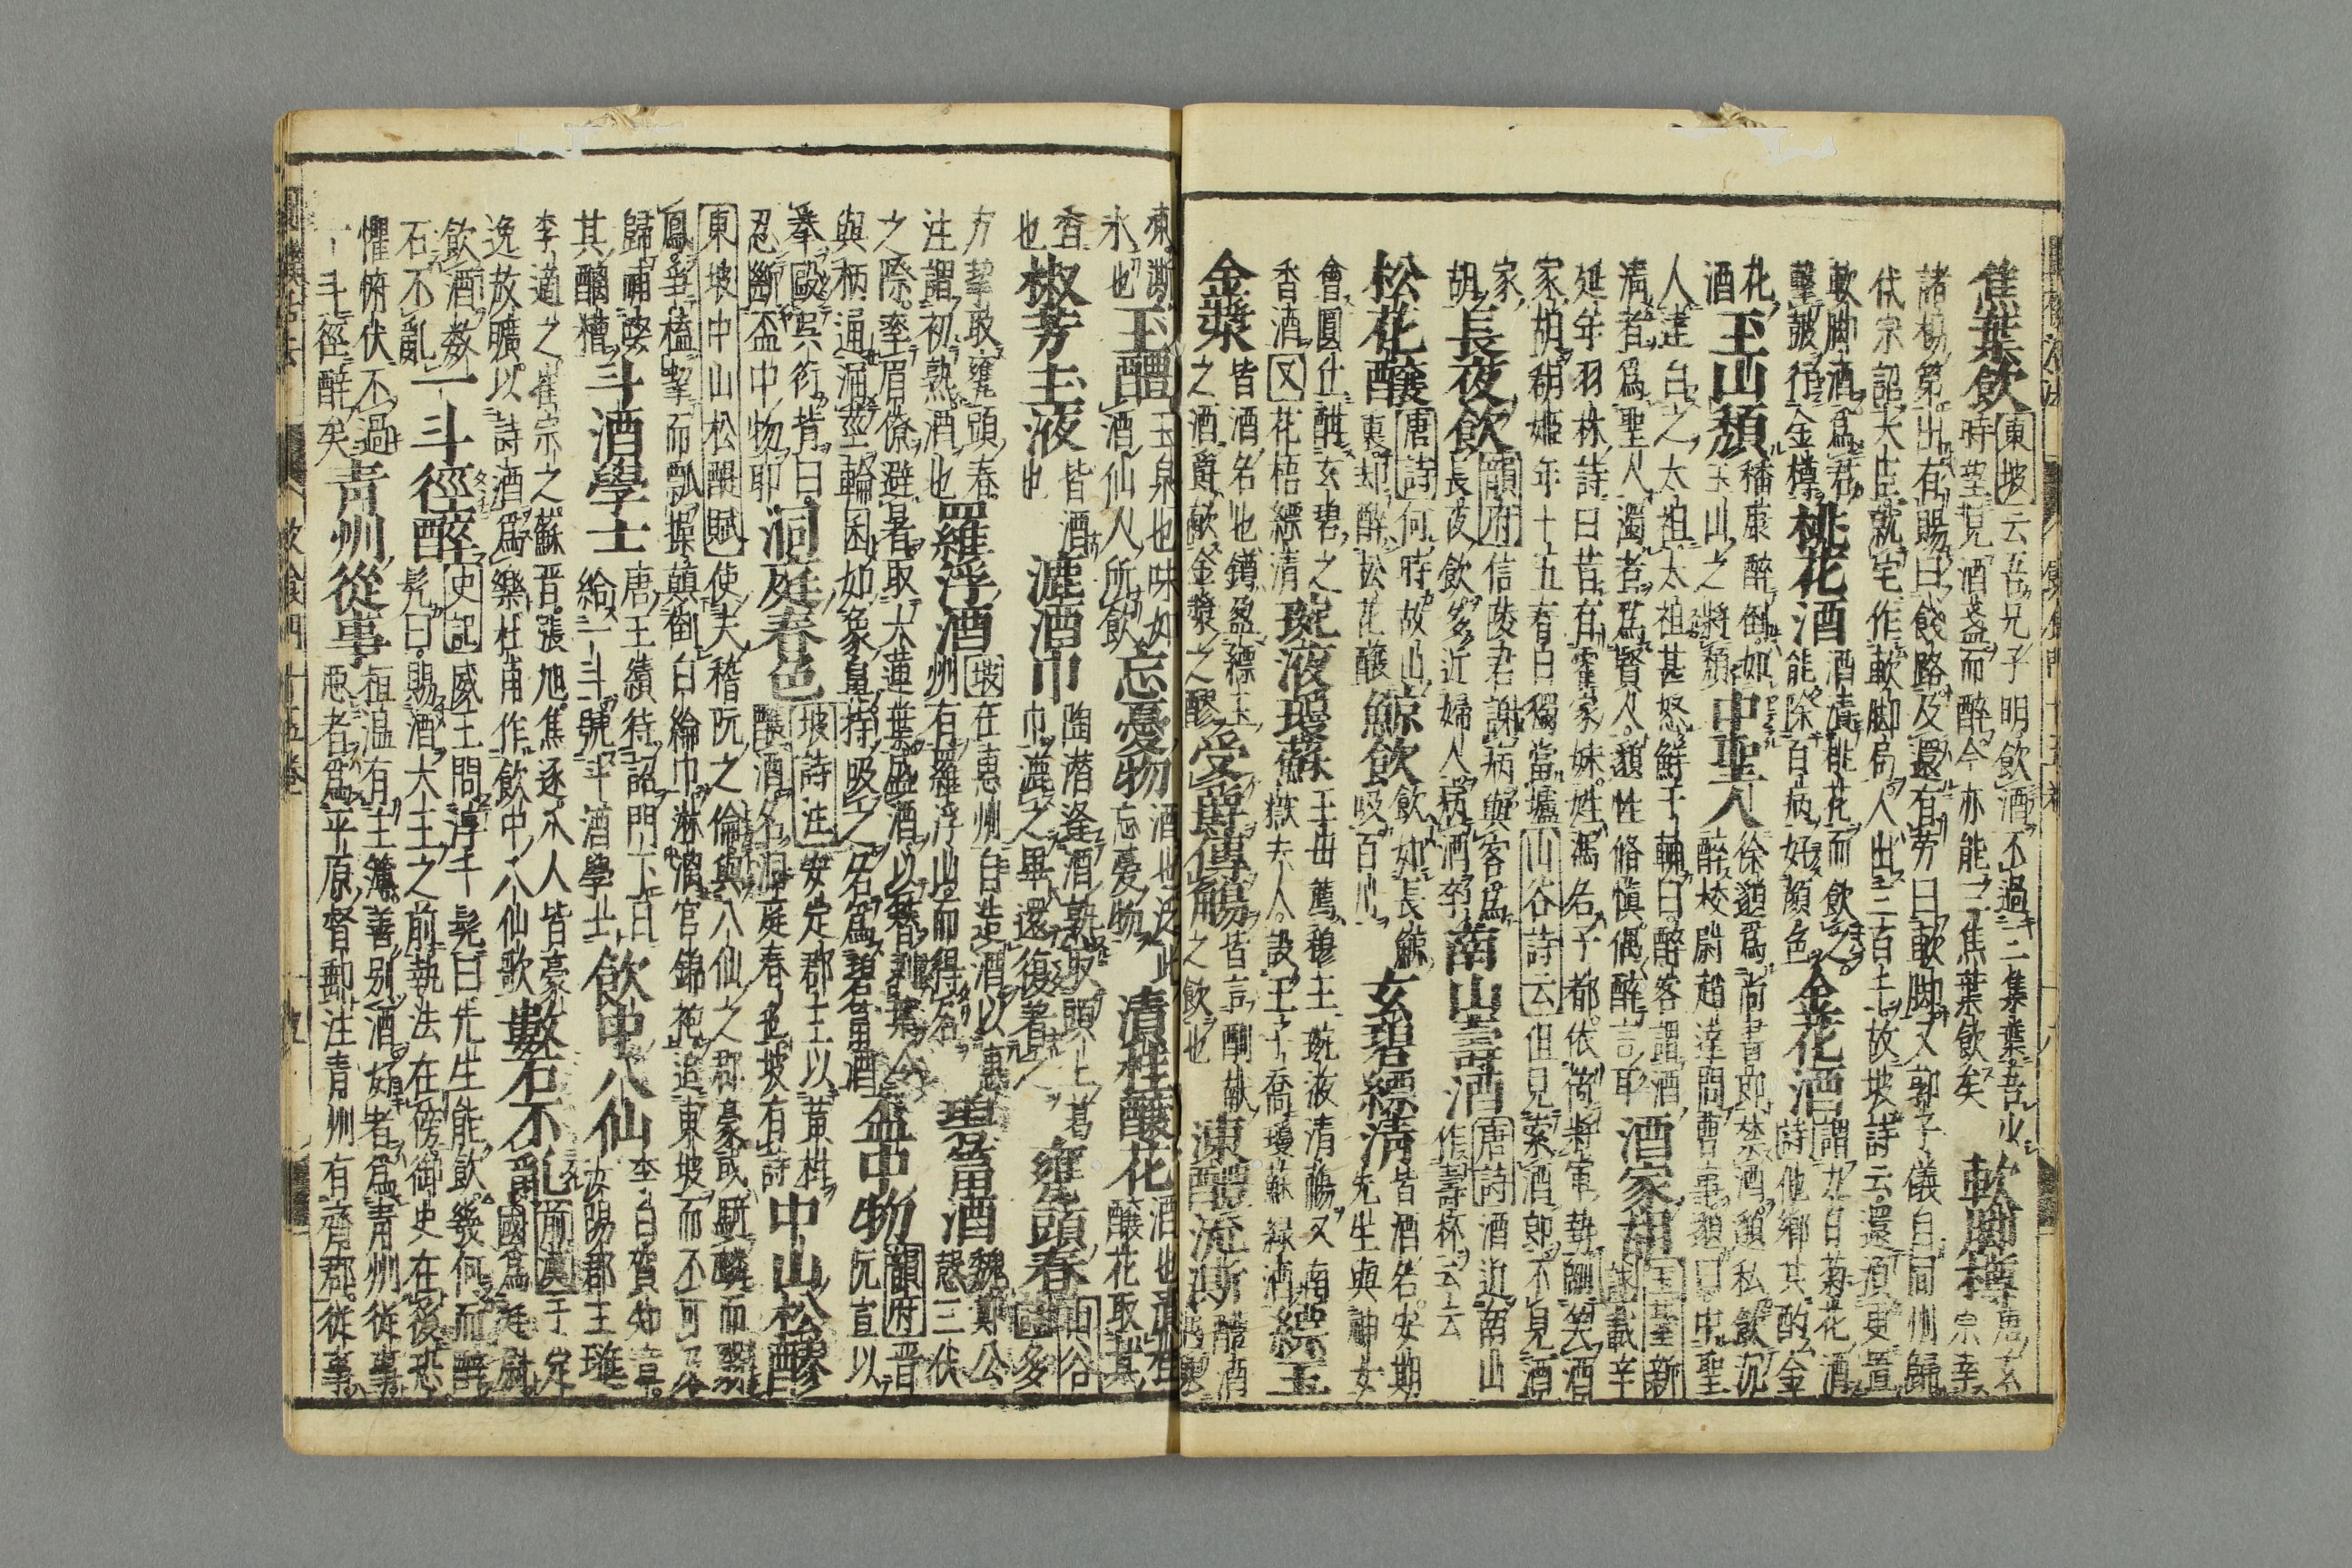 焦葉飲 東坡云吾兄子明飲酒不過三集葉吾少
時望見酒盞而醉今亦能三焦葉飲矣 軟脚樽 唐玄
宗幸
諸楊第出有賜曰餞路及還有労曰軟脚又郭子儀自同州歸
代宗詔大臣就宅作軟脚局人出三百土故坡詩云還須更置
軟脚酒為君
擊皷行金樽 桃花酒 酒漬桃花而飲之
能除百病好顔色 金花酒 謂九日菊花酒
詩他郷其酌金
花 玉山頽 嵇康醉倒如
玉山之將頽 中聖人 徐邈為尚書郎禁酒邈私飲沉
酒 醉校尉趙達問曹事邈曰中聖
人達白之太祖太祖甚怒鮮于輔曰醉客謂酒
清者為聖人濁者為賢人邈性脩慎偶醉言耳 酒家胡 国基新
詠載辛
延年羽林詩曰昔有霍家姝姓馮名子都依倚將軍勢調笑酒
家胡胡姫年十五春日獨當壚 山谷詩云但見索酒郎不見酒
家
胡 長夜飲 韻府信陵君謝病與客為
長夜飲多近婦人病酒卒 南山壽酒 唐詩酒近南山
作壽杯云云
松花釀 唐詩何時故山
裏却醉松花釀 鯨飲 飲如長鯨
吸百川 玄碧縹清 皆酒名安期
先生與神女
會圓丘酣玄碧之
香酒又花梧縹清 琬液瓊蘇 王母薦穆王琬液清觴又南
嶽夫人設王子喬瓊蘇緑酒 縹玉
金漿 皆酒名也鐏盈縹玉
之酒爵獻金漿之醪 受爵傳觴 皆言酬献
之飲也 凍醴流澌 醴酒
凍澌
氷也 玉醴 玉泉也味如
酒仙人所飲 忘憂物 酒也泛此
忘憂物 漬桂釀花 酒也漬桂
釀花取其
香
也 椒芳玉液 皆酒
也 漉酒巾 陶潜逢酒熟取頭上葛
巾漉之畢還復着之 甕頭春 山谷
方挈取甕頭春
注謂初熟酒也 羅浮酒 坡在惠州自造酒以惠
州有羅浮山而得名 碧筩酒 魏鄭公
愨三伏
之際率賔僚避暑取大蓮葉盛酒以簪刺葉令
與柄通漏莖輪囷如象鼻持吸之名為碧筩酒 盃中物 韻府晋
阮宣以
拳毆呉衍背曰
忍断盃中物耶 洞庭春色 坡詩注安定郡王以黄柑
釀酒名洞庭春色坡有詩 中山松醪
東坡中山松醪賦使夫稽阮之倫與八仙之郡豪或騎麟而翳
鳳争榼挈而瓢操顛倒白綸巾淋漓官錦袍追東坡而不可及
歸餔歠
其醨糟 斗酒學士 唐王績待詔門下日
給一斗號斗酒學士 飲中八仙 李白賀知章
汝陽郡王璡
李適之崔宗之蘇晋張旭焦遂八人皆豪
逸放曠以詩酒為樂杜甫作飲中八仙歌 數石不乱 前漢于定
國為廷尉
飲酒数
石不亂 一斗徑醉 史記威王問淳于髡曰先生能飲幾何而醉
髡曰賜酒大王之前執法在傍御史在後恐
懼俯伏不過
一斗徑醉矣 青州從事 桓温有主簿善別酒好者為青州從事
悪者為平原督郵注青州有齊郡從事